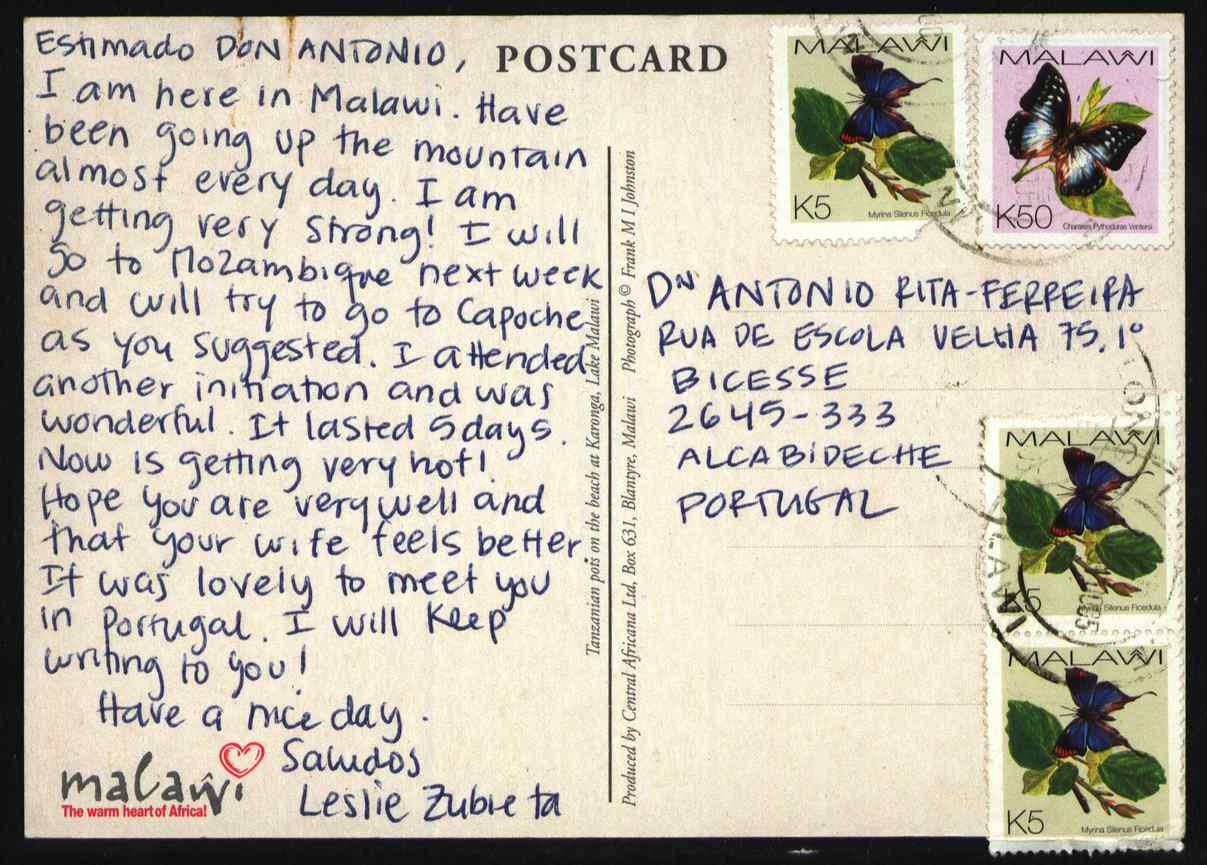 Estimado DON ANTONIO,
I am here in Malawi. Have
been going up the mountain
almost every day. I am
getting very strong! I will
go to Mozambique next week
and will try to go to Capoche
as you suggested. I attended
another initiation and was
wonderful. It lasted 5 days.
Now is getting very hot!
Hope you are very well and
that your wife feels better.
It was lovely to meet you
in Portugal. I will keep
writing to you!
Have a nice day.
Saludos
Leslie Zubieta
malaŵi
The warm heart of Africa!
POSTCARD
Tanzanian pots on the beach at Karonga, Lake Malawi
Produced by Central Africana Ltd, Box 631, Blantyre, Malawi Photograph © Frank M I Johnston
MALAŴI
K5
Myrina Silenus Ficedula
MALAŴI
K50
Charaxes Pythoduras Ventersi
Dⁿ ANTONIO RITA-FERREIRA
RUA DE ESCOLA VELHA 75, 1º
BICESSE
2645-333
ALCABIDECHE
PORTUGAL
MALAŴI
K5
Myrina Silenus Ficedula
MALAŴI
K5
Myrina Silenus Ficedula